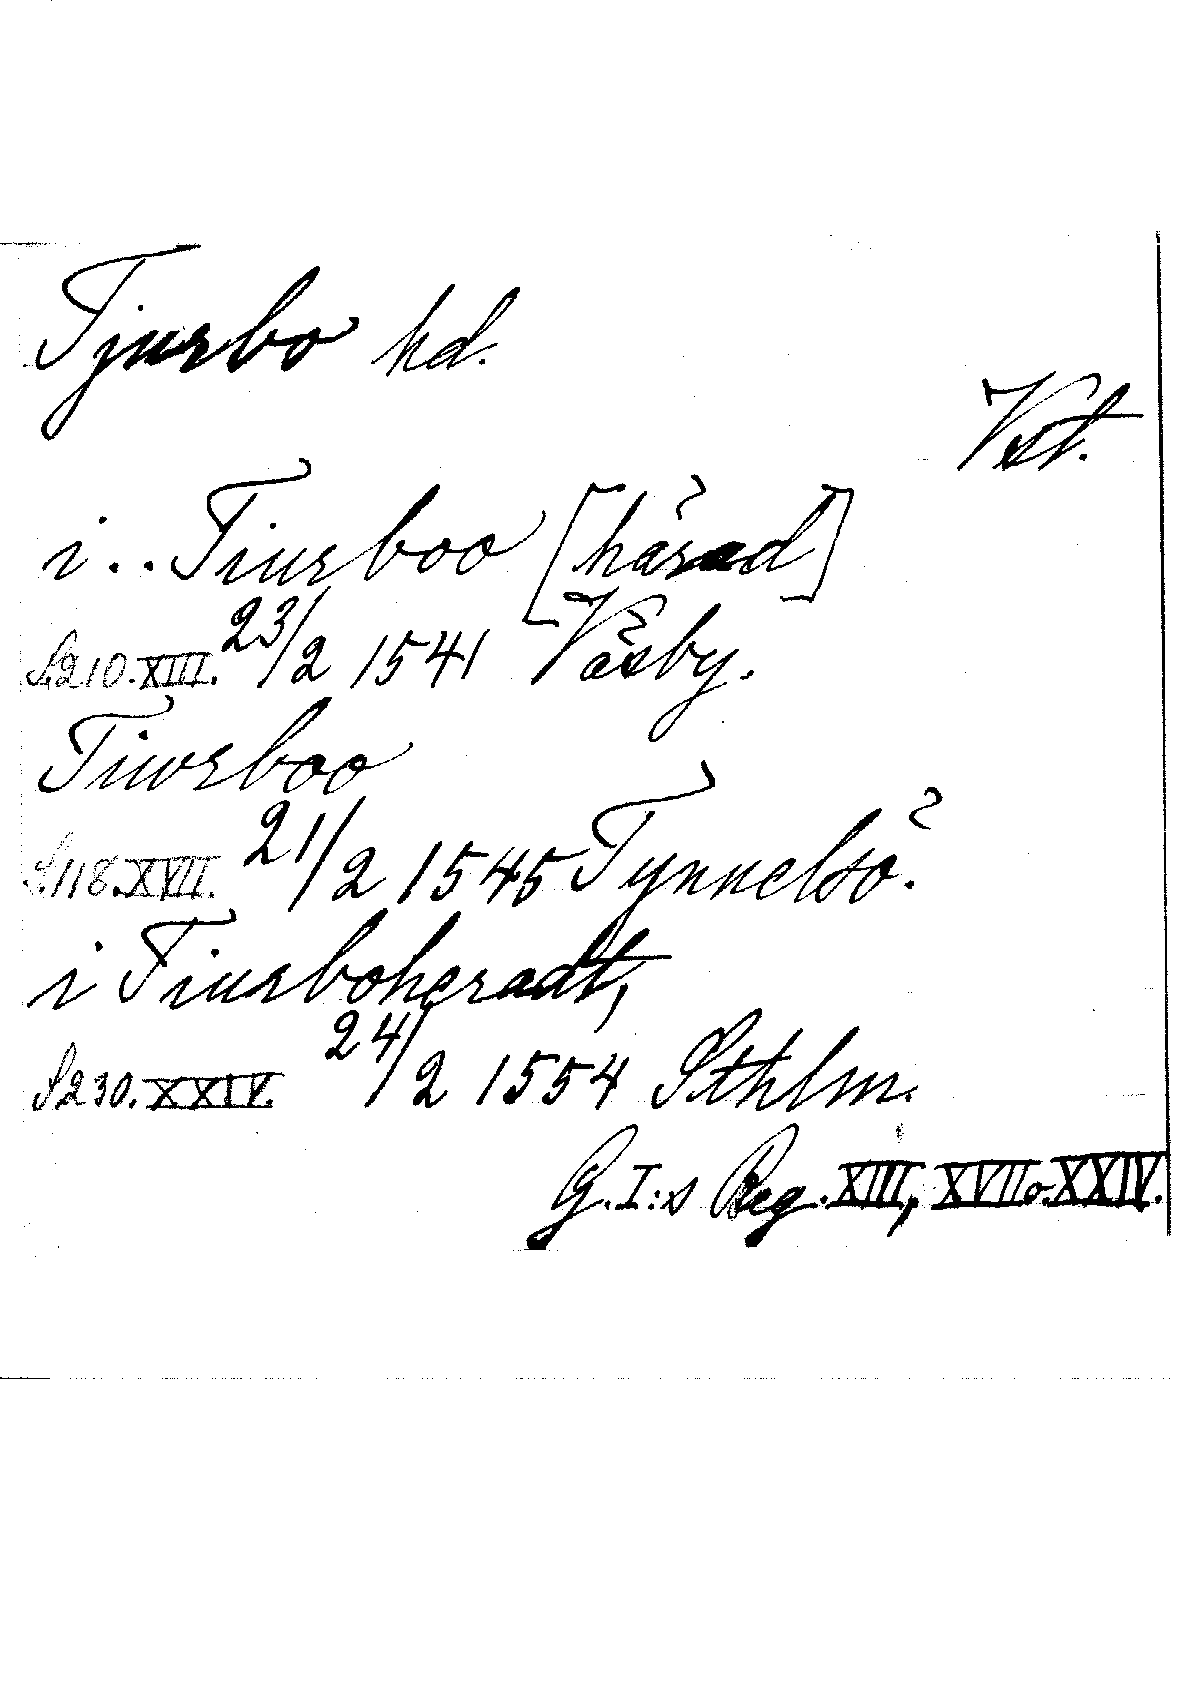 Tjurbo hd.
Vst.
i . . Tiurboo [härad]
S.210. XIII. 23/2 1541 Väsby.
Tiwrboo
S.118. XVII. 21/2 1545 Tynnelsö.
i Tiurboheradt,
S.230. XXIV. 24/2 1554 Sthlm.
G.I:s Reg. XIII, XVII o. XXIV.